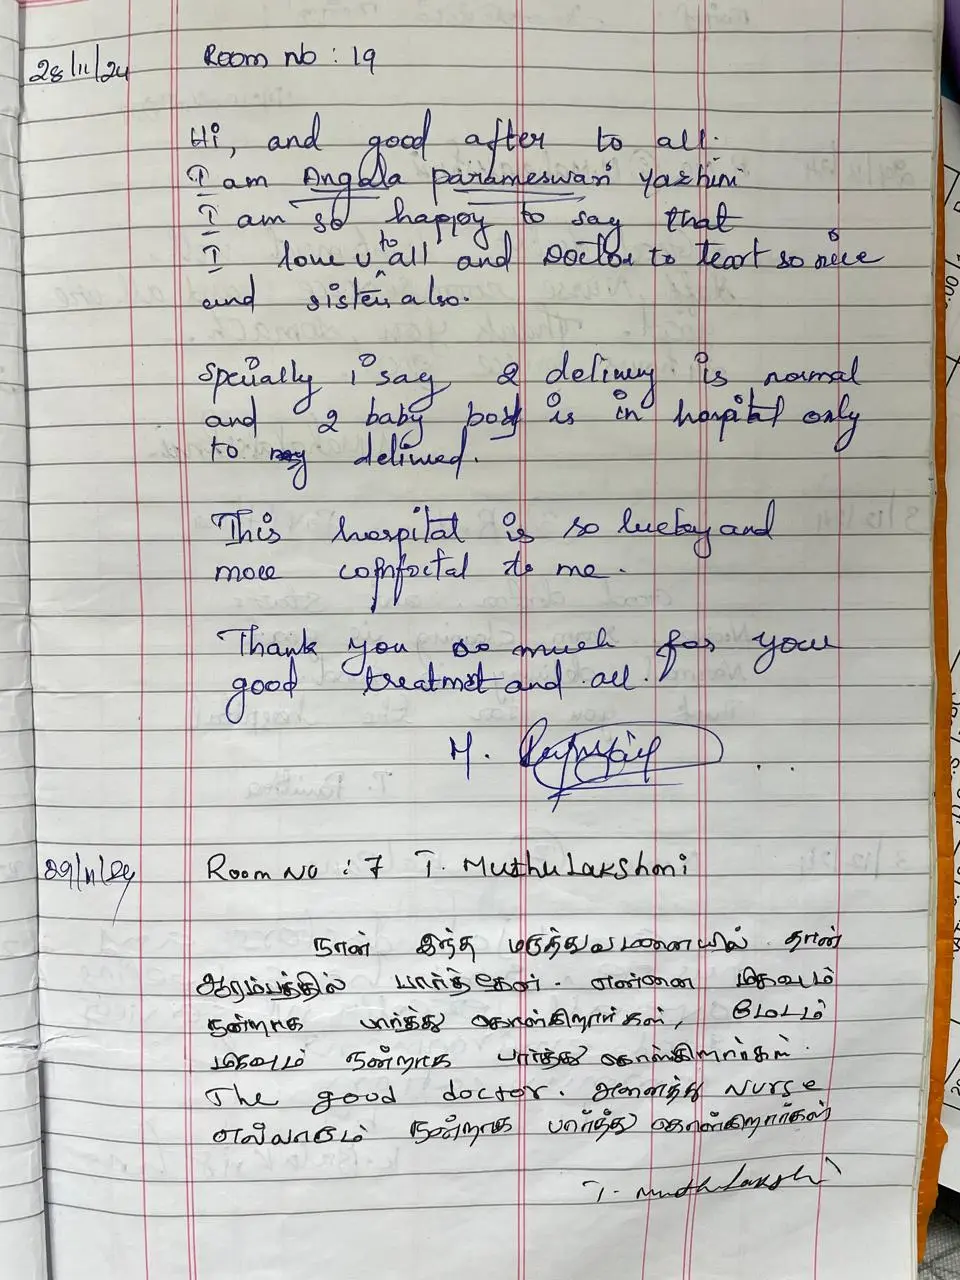 28/11/24
Room no : 19
Hi, and good after to all.
I am Angala parameswari yazhini
I am so happy to say that
I love u to all and Doctor to teart so nice
and sister also.
Specially i say 2 delivery is normal
and 2 baby boy is in hospital only
to delivered.
This hospital is so luckey and
more comfoctal to me.
Thank you so much for your
good treatmet and all.
M.
29/11/24
Room No : 7 T. MuthuLakshmi
நான் இந்த மருத்துவமனையில் தான்
ஆரம்பத்தில் பார்த்தேன். என்னை மிகவும்
நன்றாக பார்த்து கொள்கிறார்கள், மேடம்
மிகவும் நன்றாக பார்த்து கொள்கிறார்கள்.
The good doctor. அனைத்து Nurse
எல்லாரும் நன்றாக பார்த்து கொள்கிறார்கள்
T. MuthuLakshi